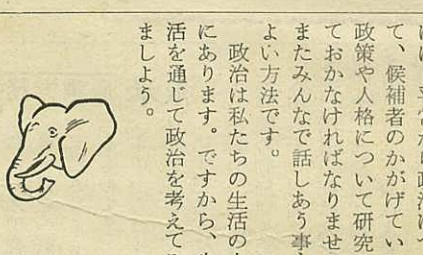 て、候補者のかがげてい
政策や人格について研究
ておかなければなりませ
またみんなで話しあう事
よい方法です。
政治は私たちの生活の
にあります。ですから、
活を通じて政治を考えて
ましよう。